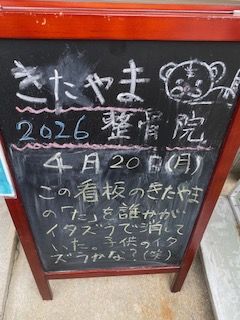 きたやま
2026 整骨院
4月20日(月)
この看板のきたやま
の「た」を誰かが
イタズラで消して
いた。子供のイタ
ズラかな?(笑)